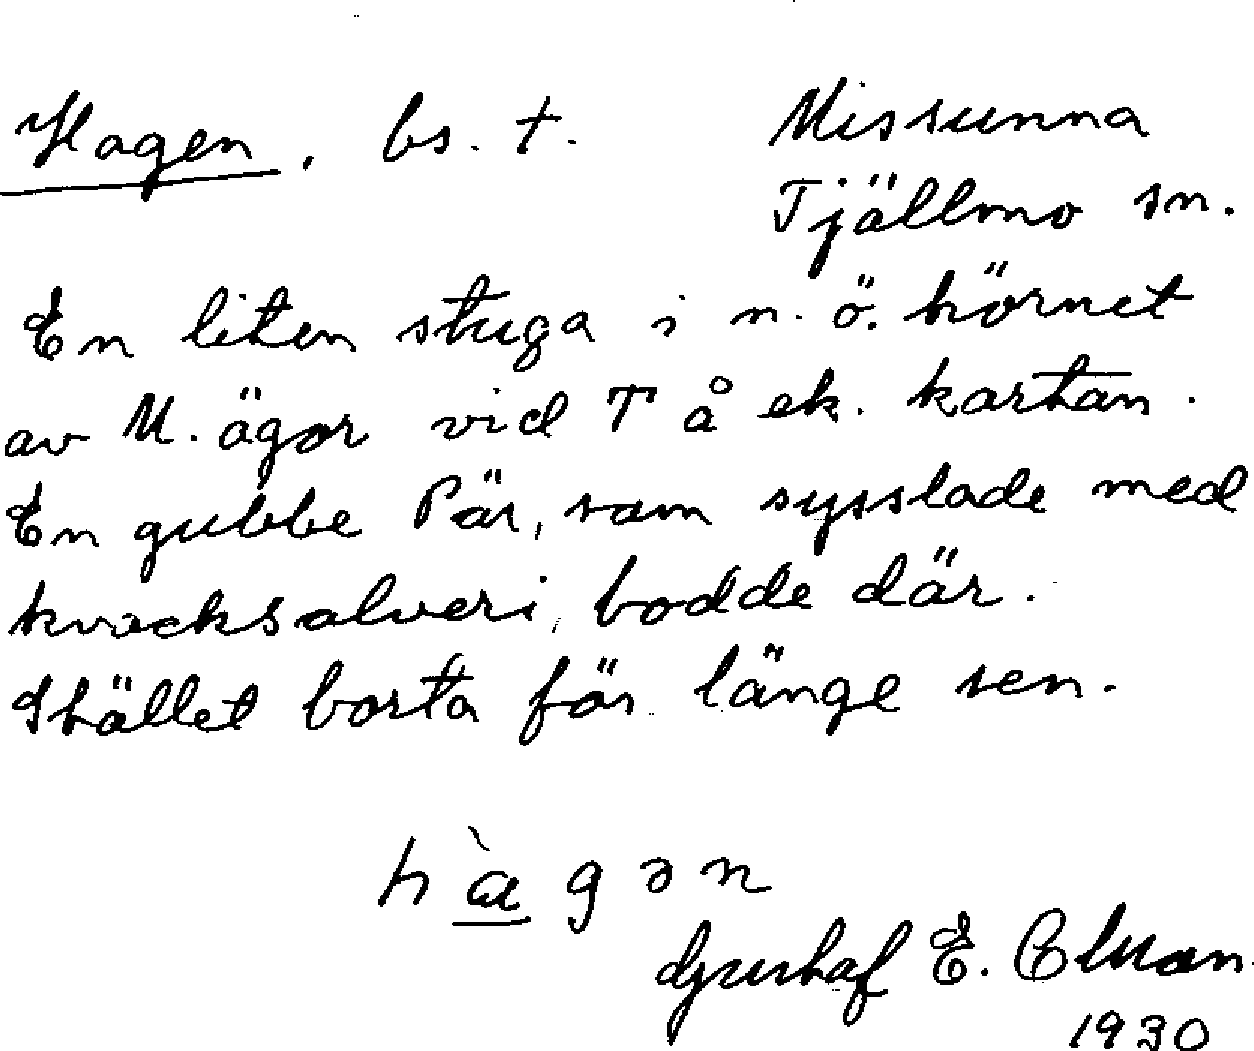 Hagen, bs. t. Missunna
Tjällmo sn.
En liten stuga i n. ö. hörnet
av M. ägor vid T å ek. kartan.
En gubbe Pär, som sysslade med
kvacksalveri, bodde där.
Stället borta för länge sen.
hàgən
Gustaf E.
1930